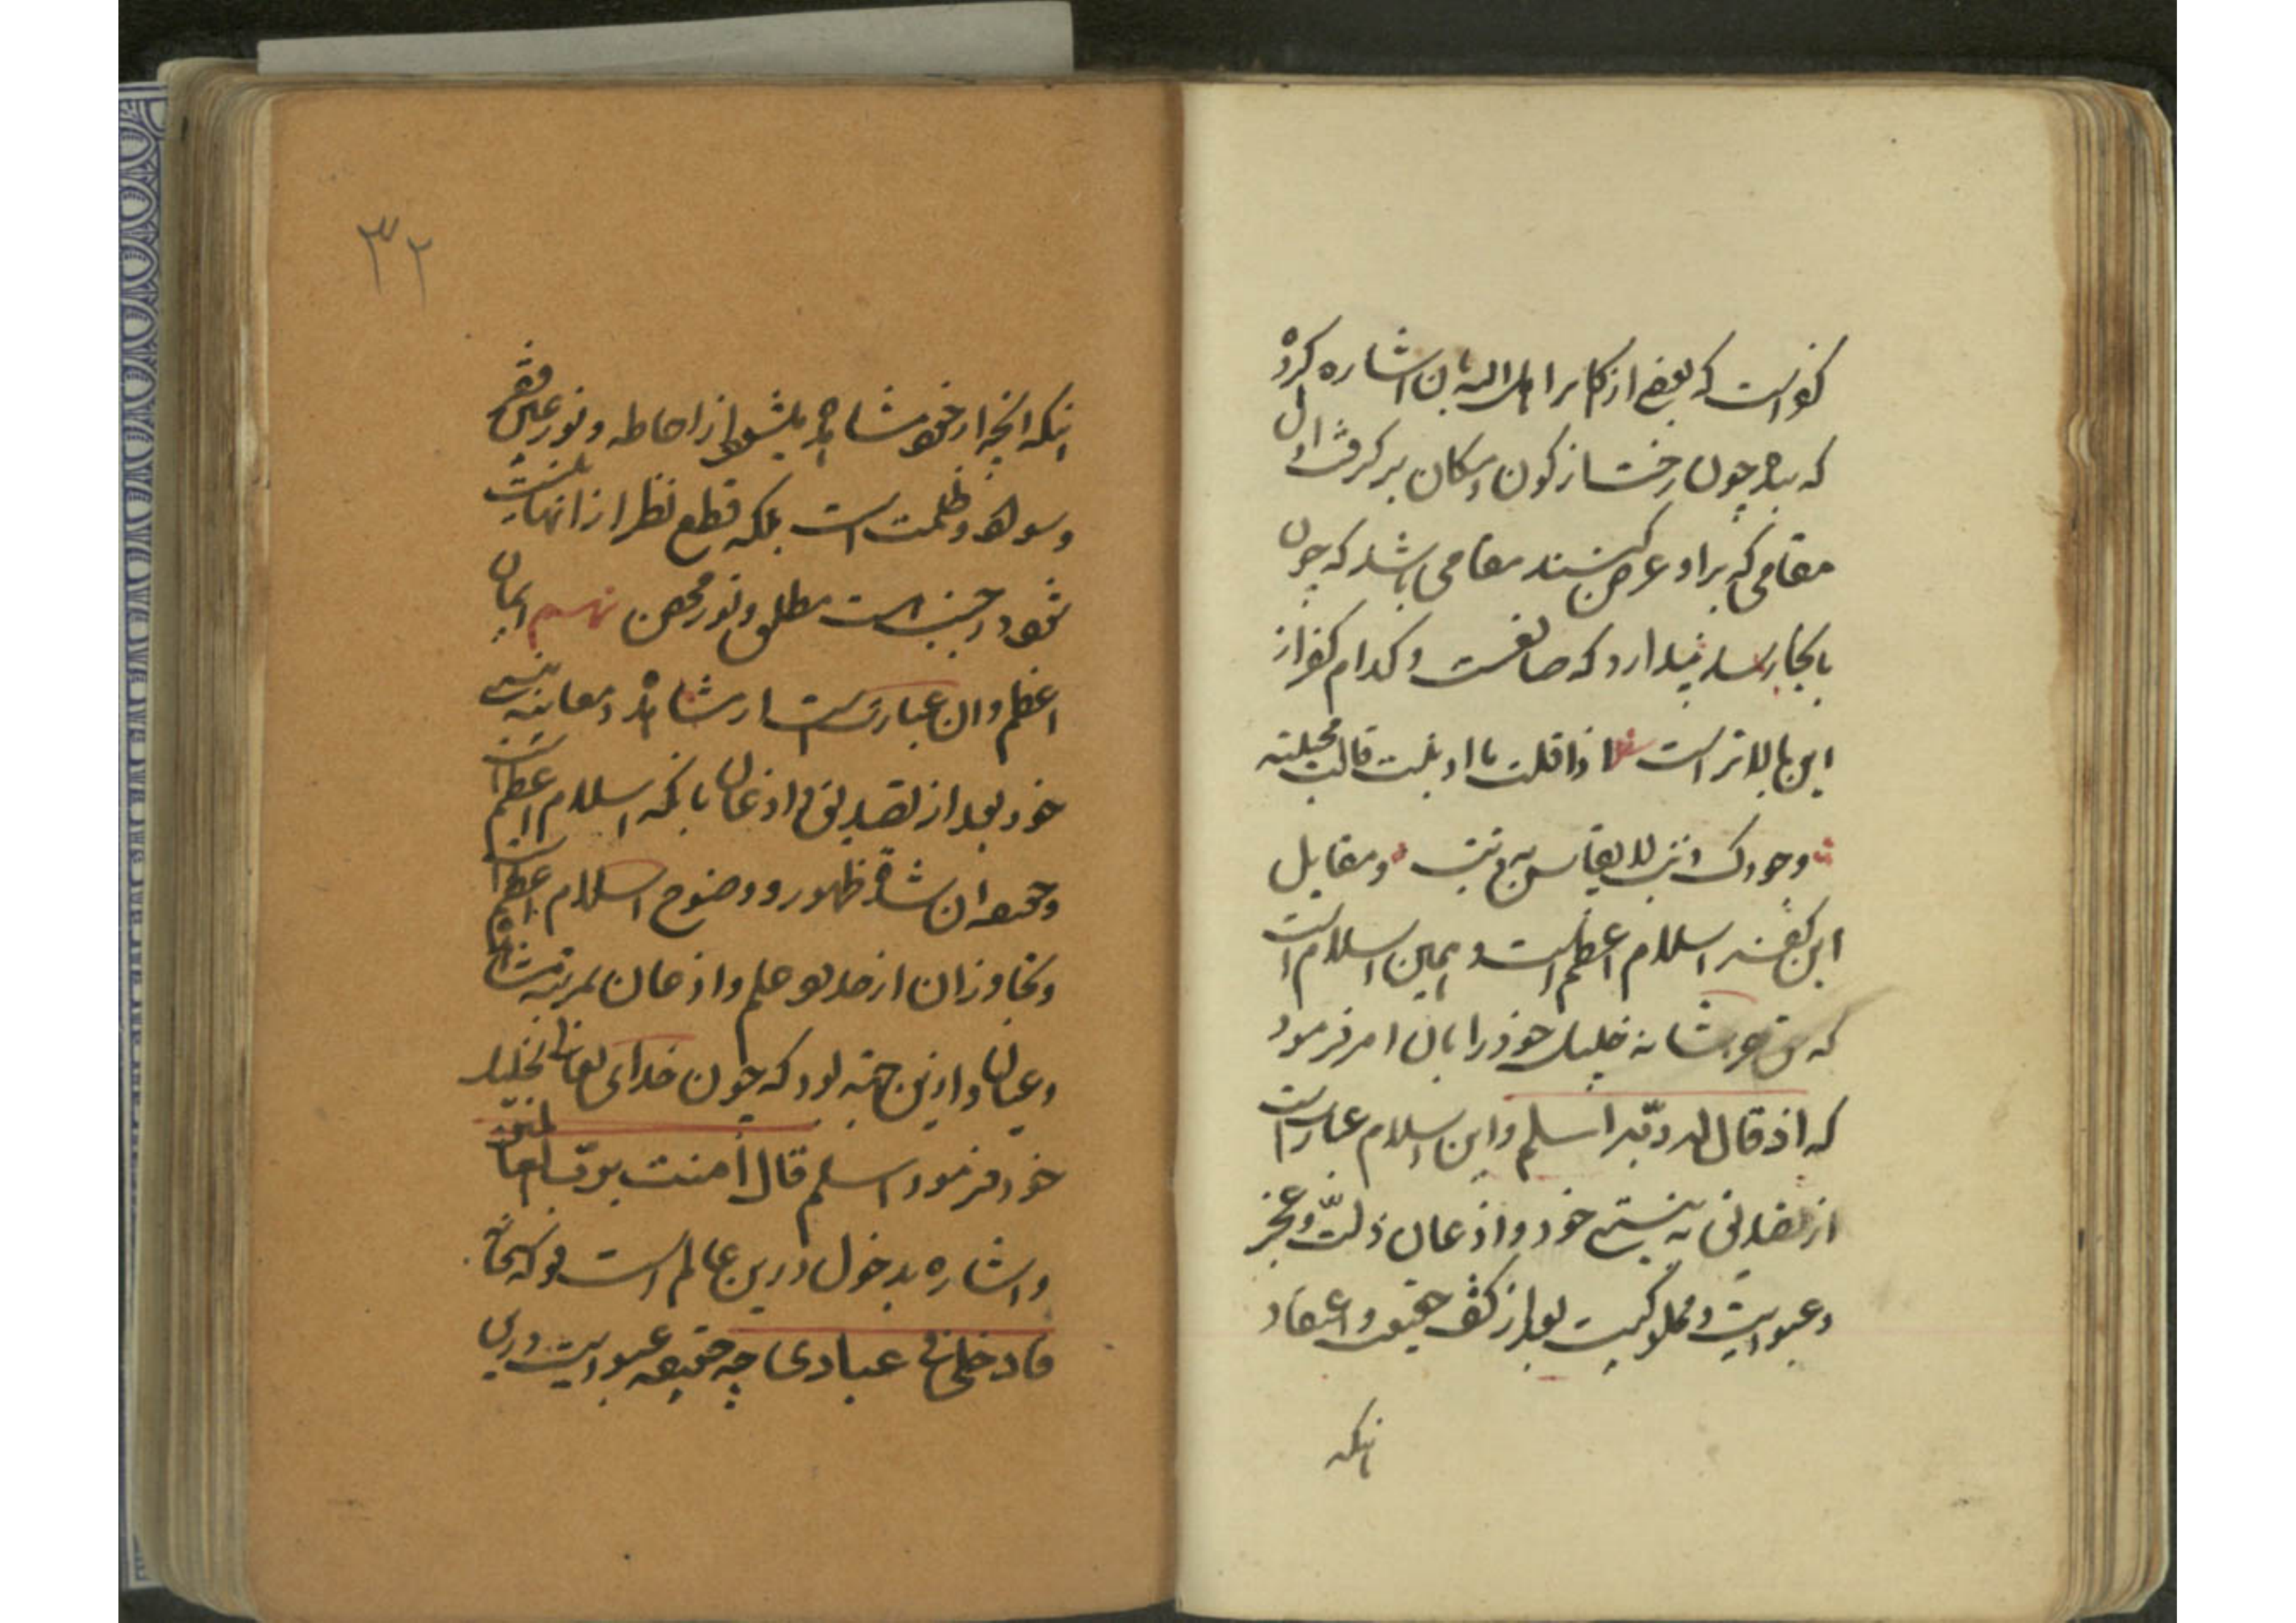 کفر است که بعضی از اکابر اهل الله بآن اشاره کرده
که بنده چون رخت از کون و مکان برگرفت اول
مقامی که بر او عرض کنند مقامی باشد که چون
بآنجا رسد پندارد که صانعست و کدام کفر از
این بالاتر است شعر اذا قلت ما اذنبت قالت مجیبته
وجودک ذنب لا یقاس به ذنب و مقابل
این کفر اسلام اعظمست و همین اسلام است
که خلیل خود را بآن امر فرمود
که اذ قال له ربه اسلم و این اسلام عبارتست
از تصدیق به نیستی خود و اذعان ذلت و عجز
و عبودیت و مملوکیت بعد از کشف حقیقت و اعتقاد
آنکه
۳۲
آنکه آنچه از خود مشاهده میشود از احاطه و نور عین فقر
و سواد و ظلمت است بلکه قطع نظر از آنها نیست
مطلق و نور محض نهم ایمان
اعظم و آن عبارتست از مشاهده و معاینه نیستی
خود بعد از تصدیق و اذعان بآنکه اسلام اعظم است
و حقیقت آن شدة ظهور و وضوح اسلام اعظم است
و تجاوز آن از حد علم و اذعان بمرتبه مشاهده
و عیان و ازین جهته بود که چون خدای تعالی بخلیل
خود فرمود اسلم قال امنت برب العالمین
و اشاره بدخول درین عالم است قوله تعالی
فادخلی فی عبادی چه حقیقة عبودیت درین